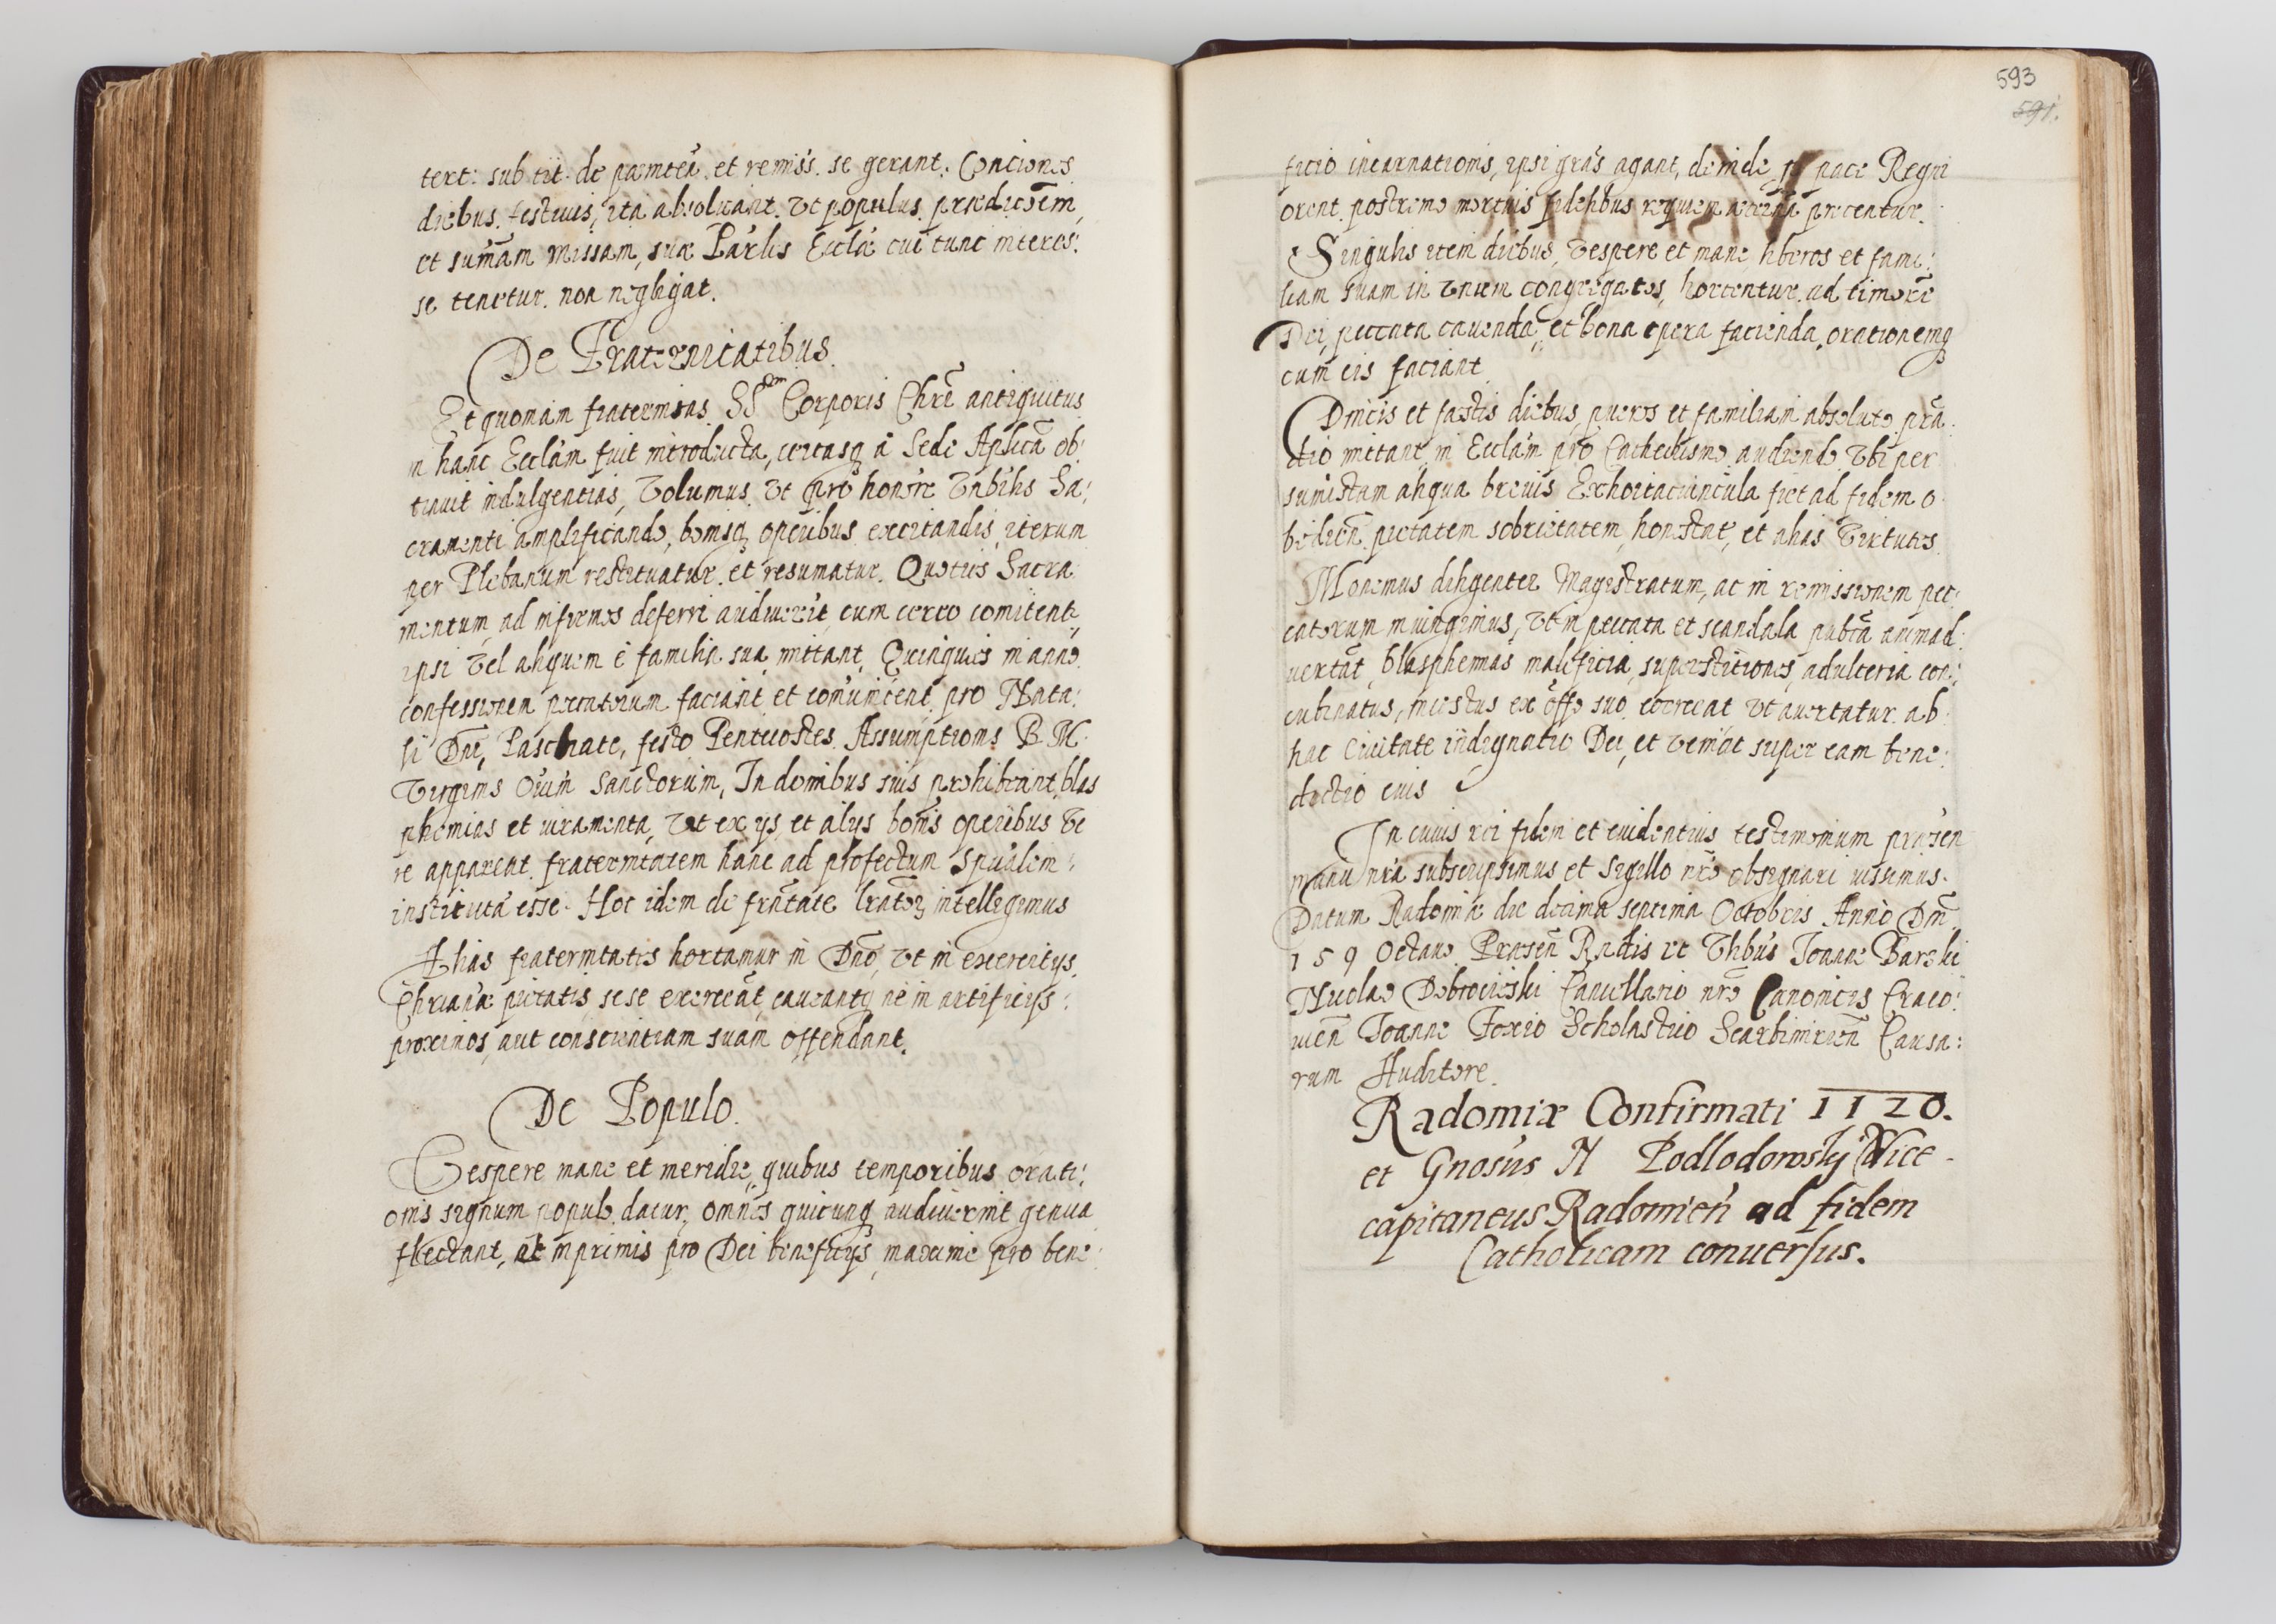 text: sub tit. de pœnitēā. et remiss. se gerant. Conciones
diebus festiuis, ita absoluant. vt populus prædicōēm,
et summām missam, suæ Pārlis Ecclæ cui tunc interes:
se tenetur. non negligat.
De Fraternitatibus.
Et quoniam fraternitas SSm Corporis Chrī antiquitus
in hanc Ecclām fuit introducta, certasq, à Sede Aplicā ob:
tinuit indulgentias, Volumus vt pro honore Vnbilis Sa:
cramenti amplificando, bonisq, operibus excitandis, iterum
per Plebanum restituatur et resumatur. Quoties Sacra
mentum, ad infirmos deferri audiuerit, cum cereo comitent,
ipsi vel aliquem è familia sua mittant, Quinquies in anno
confessionem peccatorum faciant et comunicent pro Nata:
li Dnī, Paschate, festo Pentecostes. Assumptionis B. M.
Virginis Oīum Sanctorum, In domibus suis prohibeant blas
phemias et iuramenta, Vt ex ys, et alys bonis operibus Ve
re appareat fraternitatem hanc ad profectum spūalem:
institutā esse. Hoc idem de frātate literator intelligimus
Alias fraternitates hortamur in Dnō, vt in exercitys
Chrianæ pietatis, sese exerceāt, caueantq, ne in artificijs:
proximos, aut conscientiam suam offendant.
De Populo.
Vespere mane et meridie, quibus temporibus orati:
onis signum populo datur, omnes quicunq, audiuerint genua
flectant, ac inprimis pro Dei beneficys, maxime pro bene:
593
591.
ficio incarnationis, ipsi grās agant, deinde p pace Regni
orent. postremo mortuis fidelibus requiem æternā precentur.
Singulis item diebus, vespere et mane liberos et fami:
liam suam in vnum congregatos, hortentur ad timorē
Dei, peccata cauenda, et bona opera facienda, orationemq
cum eis faciant
Dnicis et festis diebus, pueros et familiam absoluto prā
dio mittant in Ecclām pro Cathechismo audiendo Vbi per
sumistam aliqua breuis Exhortaciuncula fiet ad fidem o
bedien. pietatem sobrietatem, honestat, et alias Virtutes
Monemus diligenter Magistratum, ac in remissionem pec:
catorum iniungimus, Vt in peccata et scandala publica animad:
uertāt, blasphemias maleficia, superstitiones, adulteria con:
cubinatus, incestus ex offō suo exerceat vt auertatur ab
hac Ciuitate indignatio Dei, et veniat super eam bene:
dictio eius
In cuius rei fidem et euidentius testimonium præsen
manu nrā subscripsimus et sigillo nrō obsignari iussimus.
Datum Radomiæ die decima septima Octobris Anno Dnī
159 Octauo Præsen Rndis et Vlibus Ioanne Barski
Nicolao Dobrocieski Cancellario nrō Canonicis Craco:
uien Ioanne Foxio Scholastico Scarbimirien Causa:
rum Auditore.
Radomiæ Confirmati 1120.
et Gnosus N Podlodowskÿ Vice-
capitaneus Radomień ad fidem
Catholicam conuersus.